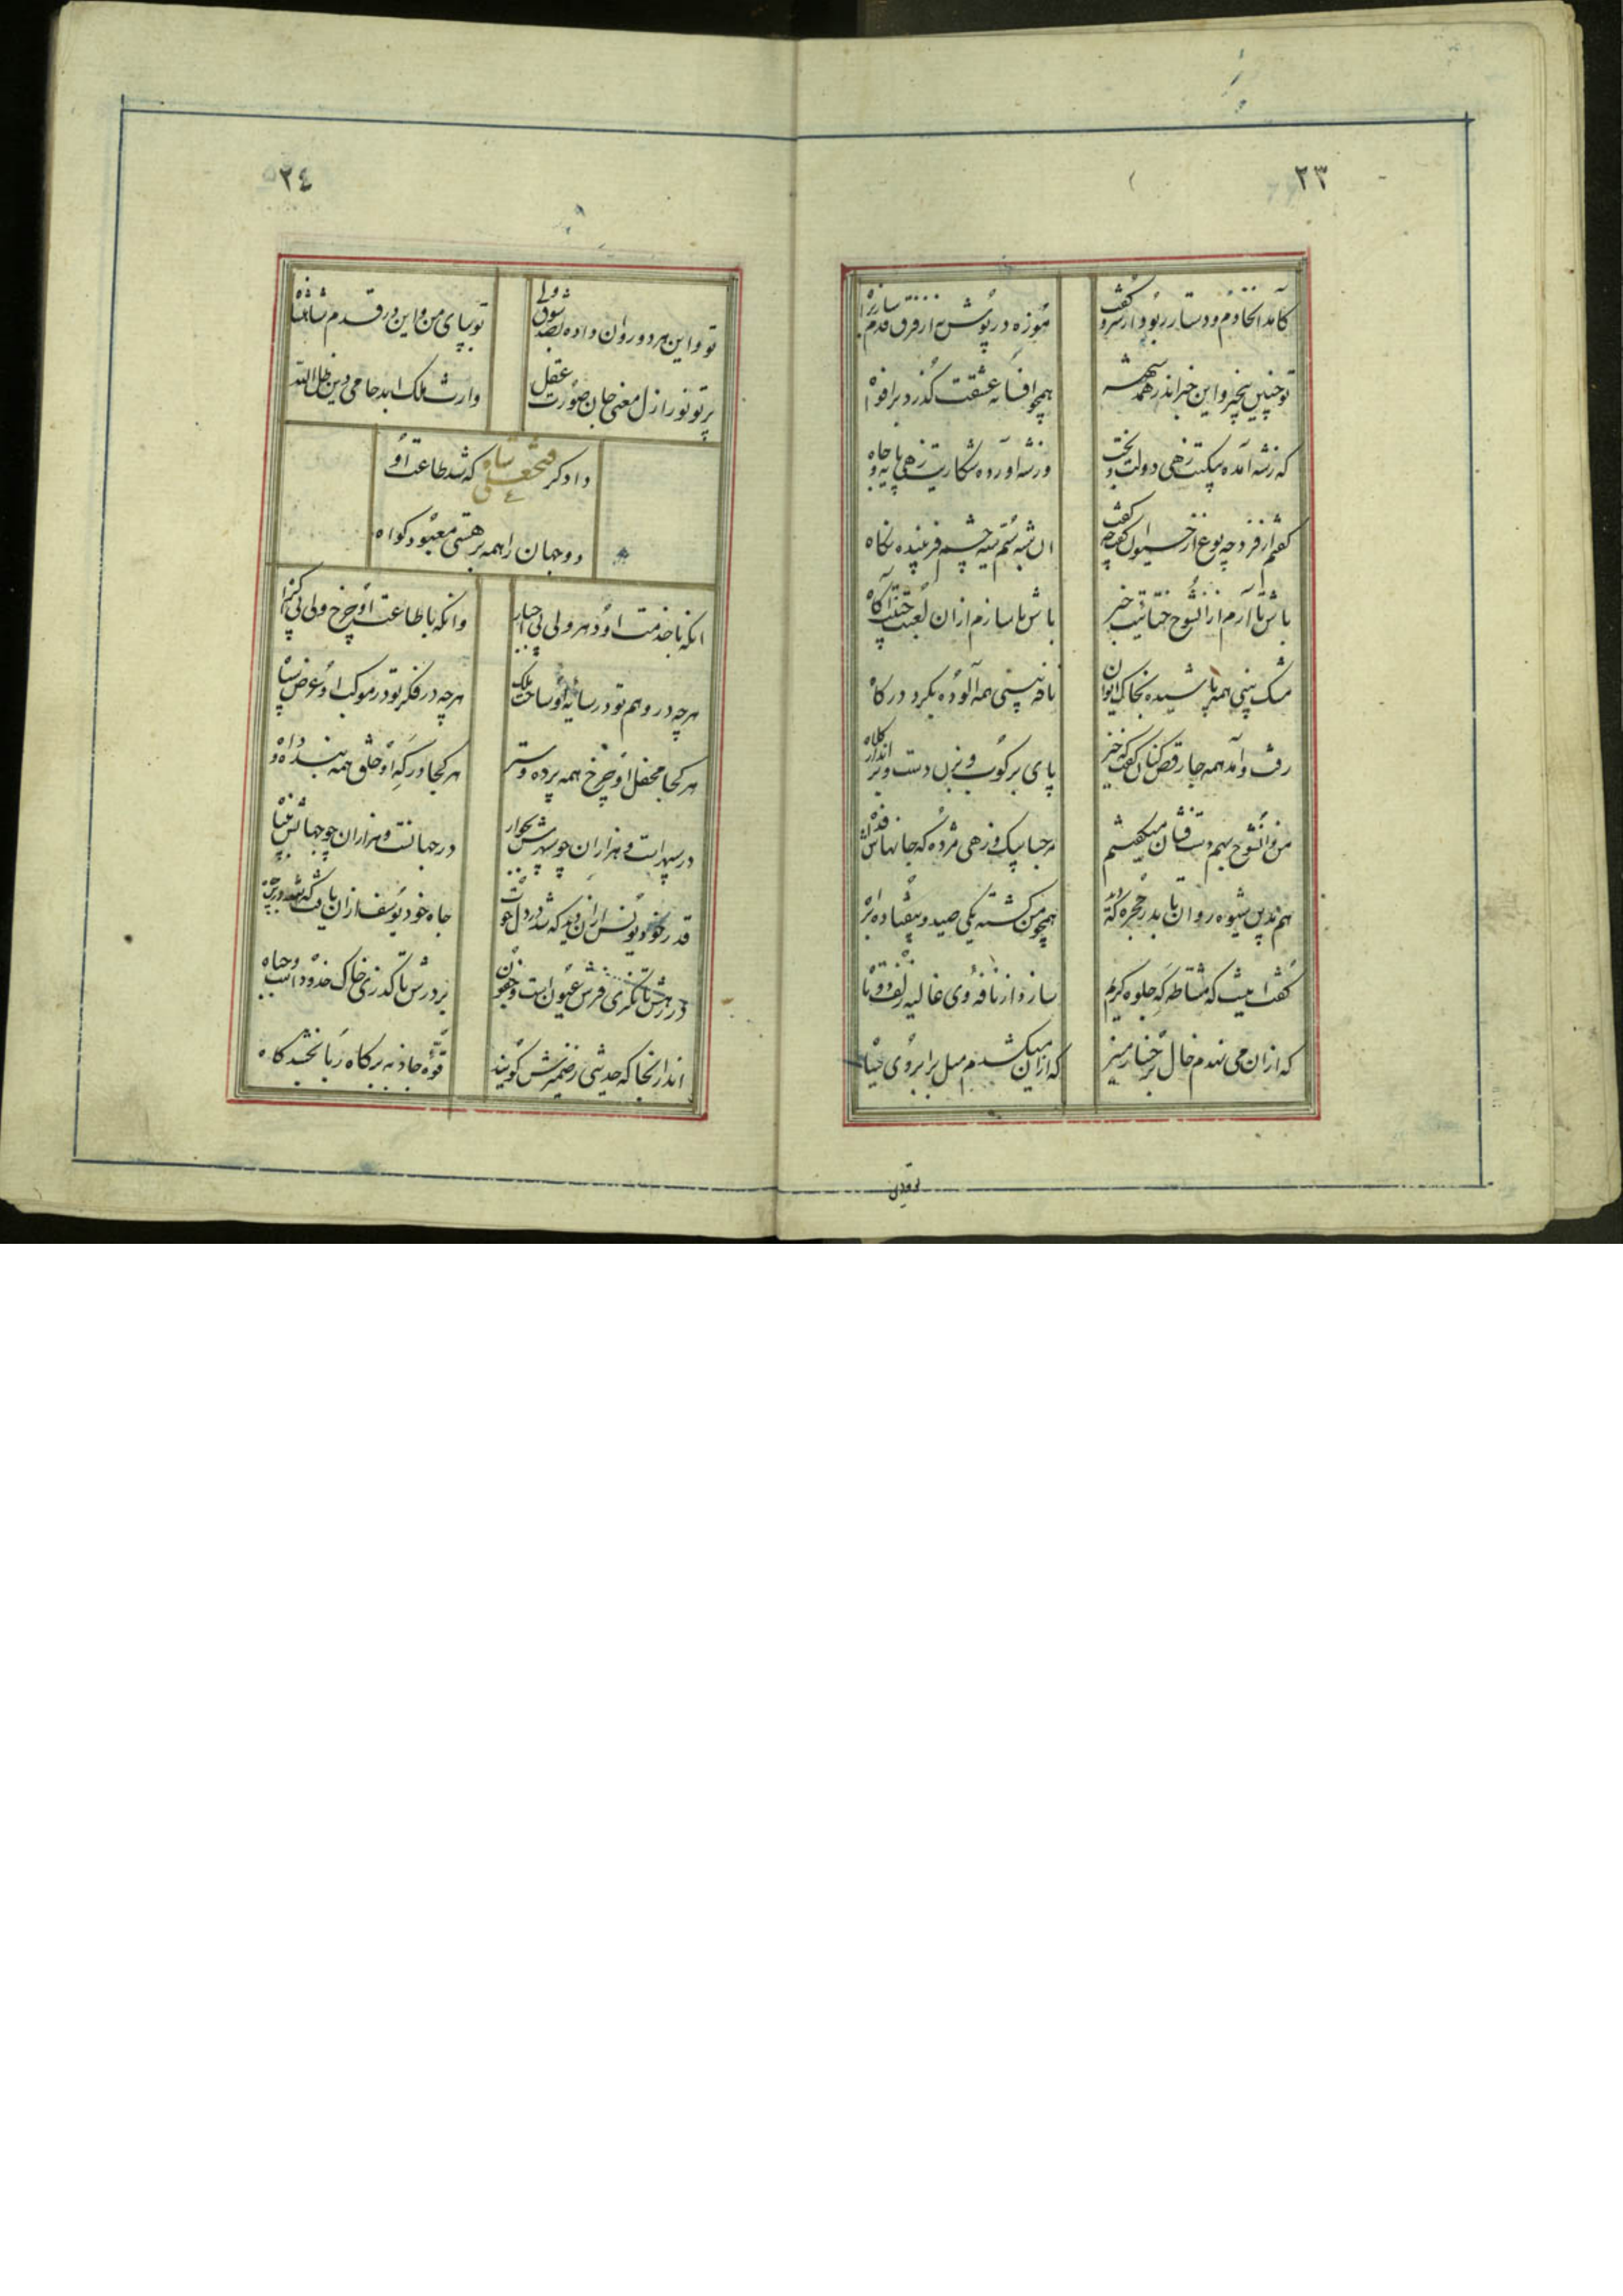 ٢٣
کآمد آنخادم و دستار ربود از سر و گفت
موزه در پوش نه از فرق قدم ساز براه
تو چنین بیخبر و این خبر اندر همه شهر
همچو افسانه عشقت گذرد بر افواه
که ز شه آمده پیکت زهی دولت و بخت
وز شه آورده شکارت زهی پایه و جاه
باش تا آرم از آنشوخ ختائیت خبر
باش تا سازم از آن لعبت چینت آگاه
مشک بینی همه پاشیده بخاک ایوان
نافه بینی همه آلوده بگرد درگاه
رفت و آمد همه جا رقص کنان گفت که خیز
پای بر کوب و بزن دست و بر انداز کلاه
من و آنشوخ بهم دست فشان میگفتیم
مرحبا پیک و زهی مژده که جانهاش فداه
هم بدین شیوه روان تا بدر حجره که دید
همچو من کشته یکی صید و بیفتاده براه
گفت اینست که مشاطه گه جلوه گریم
سازد از نافه وی غالیه زلف دوتا
که ازان می نهدم خال برخسار منیر
که ازاین میکشدم میل بر ابروی سیاه
٢٤
تو و این هر دو روان داده بصد شوق ولی
تو بپای من و این در قدم شاهنشاه
پرتو نور ازل معنی جان صورت عقل
وارث ملک ابد حامی دین ظل الله
دادگر فتحعلی شاه که شد طاعت او
دو جهان را همه بر هستی معبود گواه
آنکه با خدمت او دهر ولی بی اجبار
وانکه با طاعت او چرخ ولی بی اکراه
هرچه در وهم تو در سایه او ساحت ملک
هرچه در فکر تو در موکب او عرض سپاه
هر کجا محفل او چرخ همه پرده و ستر
هر کجا درگه او خلق همه بنده و داه
در سپهر است و هزاران چو سپهرش بجوار
در جهانست و هزاران چو جهانش به پناه
قدر خود یونس از آن دید که شد در دل حوت
جاه خود یوسف از آن یافت که شد در بن چاه
در رهش تا نگری فرش عیون است و جفون
بر درش تا گذری خاک خدود است و جباه
اندر آنجا که حدیثی ز ضمیرش گویند
قوه جاذبه بر کاه ربا بخشد کاه